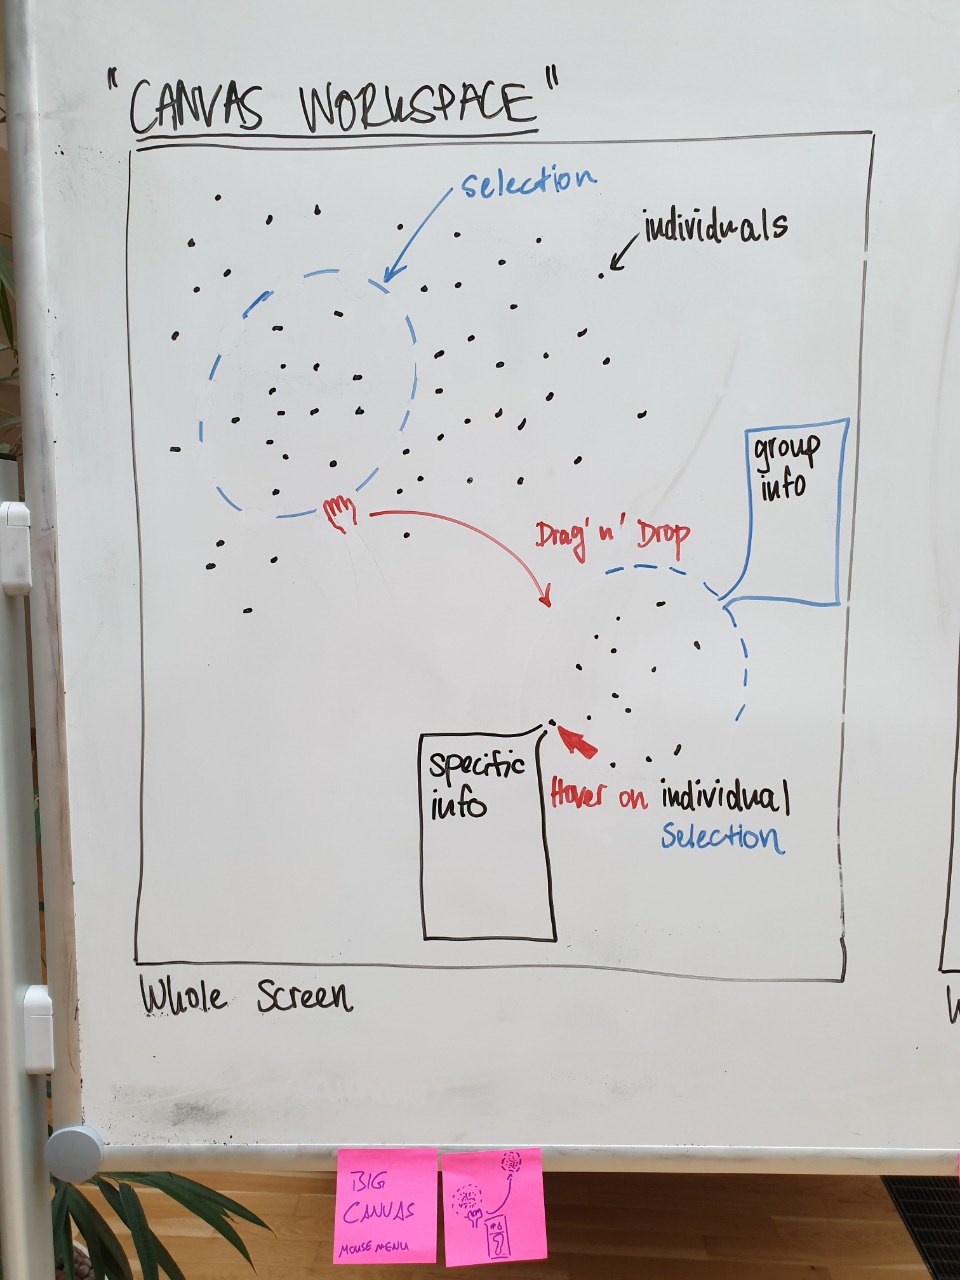 "CANVAS WORKSPACE"
Selection
individuals
group
info
Drag'n'Drop
specific
info
Hover on individual
Selection
Whole Screen
BIG
CANVAS
MOUSE MENU